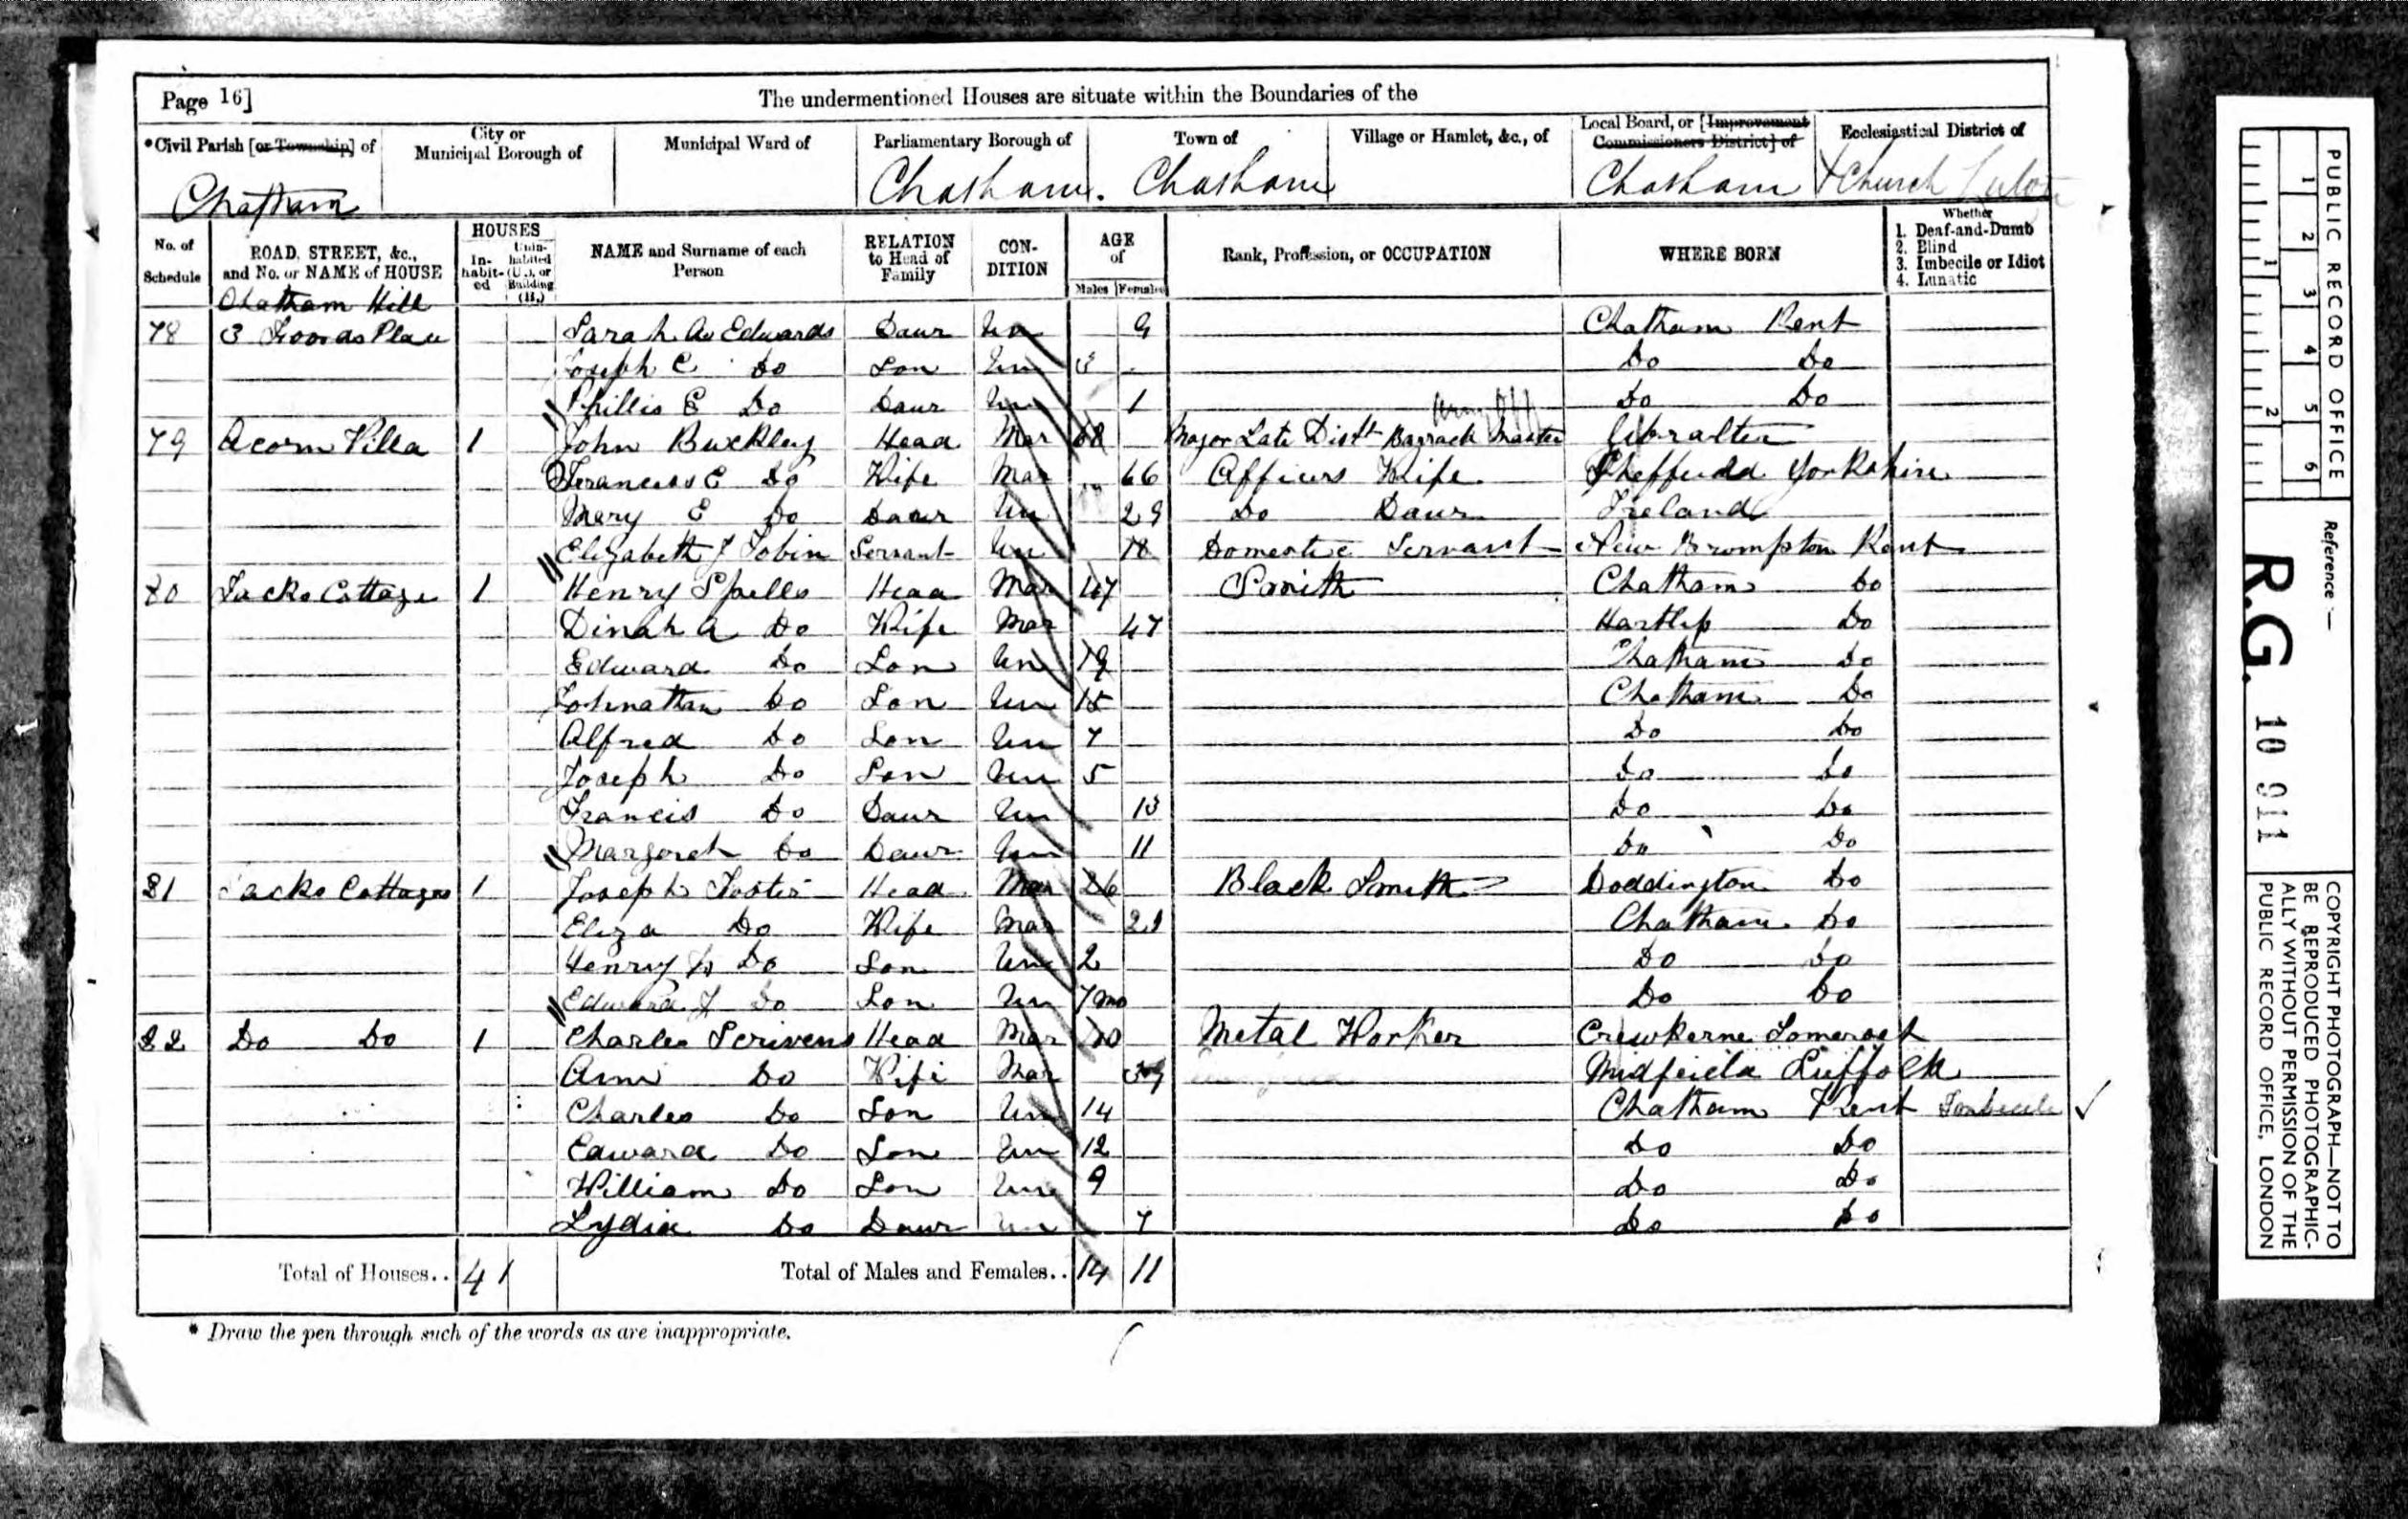 Page 16]
The undermentioned Houses are situate within the Boundaries of the
*Civil Parish [or Township] of
City or Municipal Borough of
Municipal Ward of
Parliamentary Borough of
Town of
Village or Hamlet, &c., of
Local Board, or [Improvement Commissioners District] of
Ecclesiastical District of
Chatham Chatham. Chatham Chatham Church
No. of Schedule
ROAD, STREET, &c., and No. or NAME of HOUSE
HOUSES
In-habit-ed
Unin-habited (U.), or Building (B.)
NAME and Surname of each Person
RELATION to Head of Family
CON-DITION
AGE of
Males Females
Rank, Profession, or OCCUPATION
WHERE BORN
Whether
1. Deaf-and-Dumb
2. Blind
3. Imbecile or Idiot
4. Lunatic
Chatham Hill
78 3 Sarah A Edwards Daur Un 9 Chatham Kent
Joseph C Do Son Un 3 Do Do
Phillis E Do Daur Un 1 Do Do
79 Acorn Villa 1 John Buckley Head Mar 68 Major Late Distt Barrack Master Gibralter
E Do Wife Mar 66 Officers Wife Yorkshire
Mary E Do Daur Un 29 Do Daur Ireland
Elizabeth J Tobin Servant Un 18 Domestic Servant New Brompton Kent
80 Jacks Cottage 1 Henry Spells Head Mar 47 Smith Chatham Do
Dinah A Do Wife Mar 47 Hartlip Do
Edward Do Son Un 19 Chatham Do
Johnathan Do Son Un 15 Chatham Do
Alfred Do Son Un 7 Do Do
Joseph Do Son Un 5 Do Do
Francis Do Daur Un 13 Do Do
Margaret Do Daur Un 11 Do Do
81 Jacks Cottages 1 Joseph Foster Head Mar 26 Black Smith Doddington Do
Eliza Do Wife Mar Chatham Do
Henry Do Son Un 2 Do Do
Edward J Do Son Un 7mo Do Do
82 Do Do 1 Charles Scrivens Head Mar Metal Worker Crewkerne Somerset
Ann Do Wife Mar 39 Suffolk
Charles Do Son Un 14 Chatham Kent Imbecile
Edward Do Son Un 12 Do Do
William Do Son Un 9 Do Do
Lydia Do Daur Un 7 Do Do
Total of Houses.. 4
Total of Males and Females.. 14 11
* Draw the pen through such of the words as are inappropriate.
PUBLIC RECORD OFFICE
1 2 3 4 5 6
1 2
Reference :—
R.G. 10 911
COPYRIGHT PHOTOGRAPH—NOT TO
BE REPRODUCED PHOTOGRAPHIC-
ALLY WITHOUT PERMISSION OF THE
PUBLIC RECORD OFFICE, LONDON